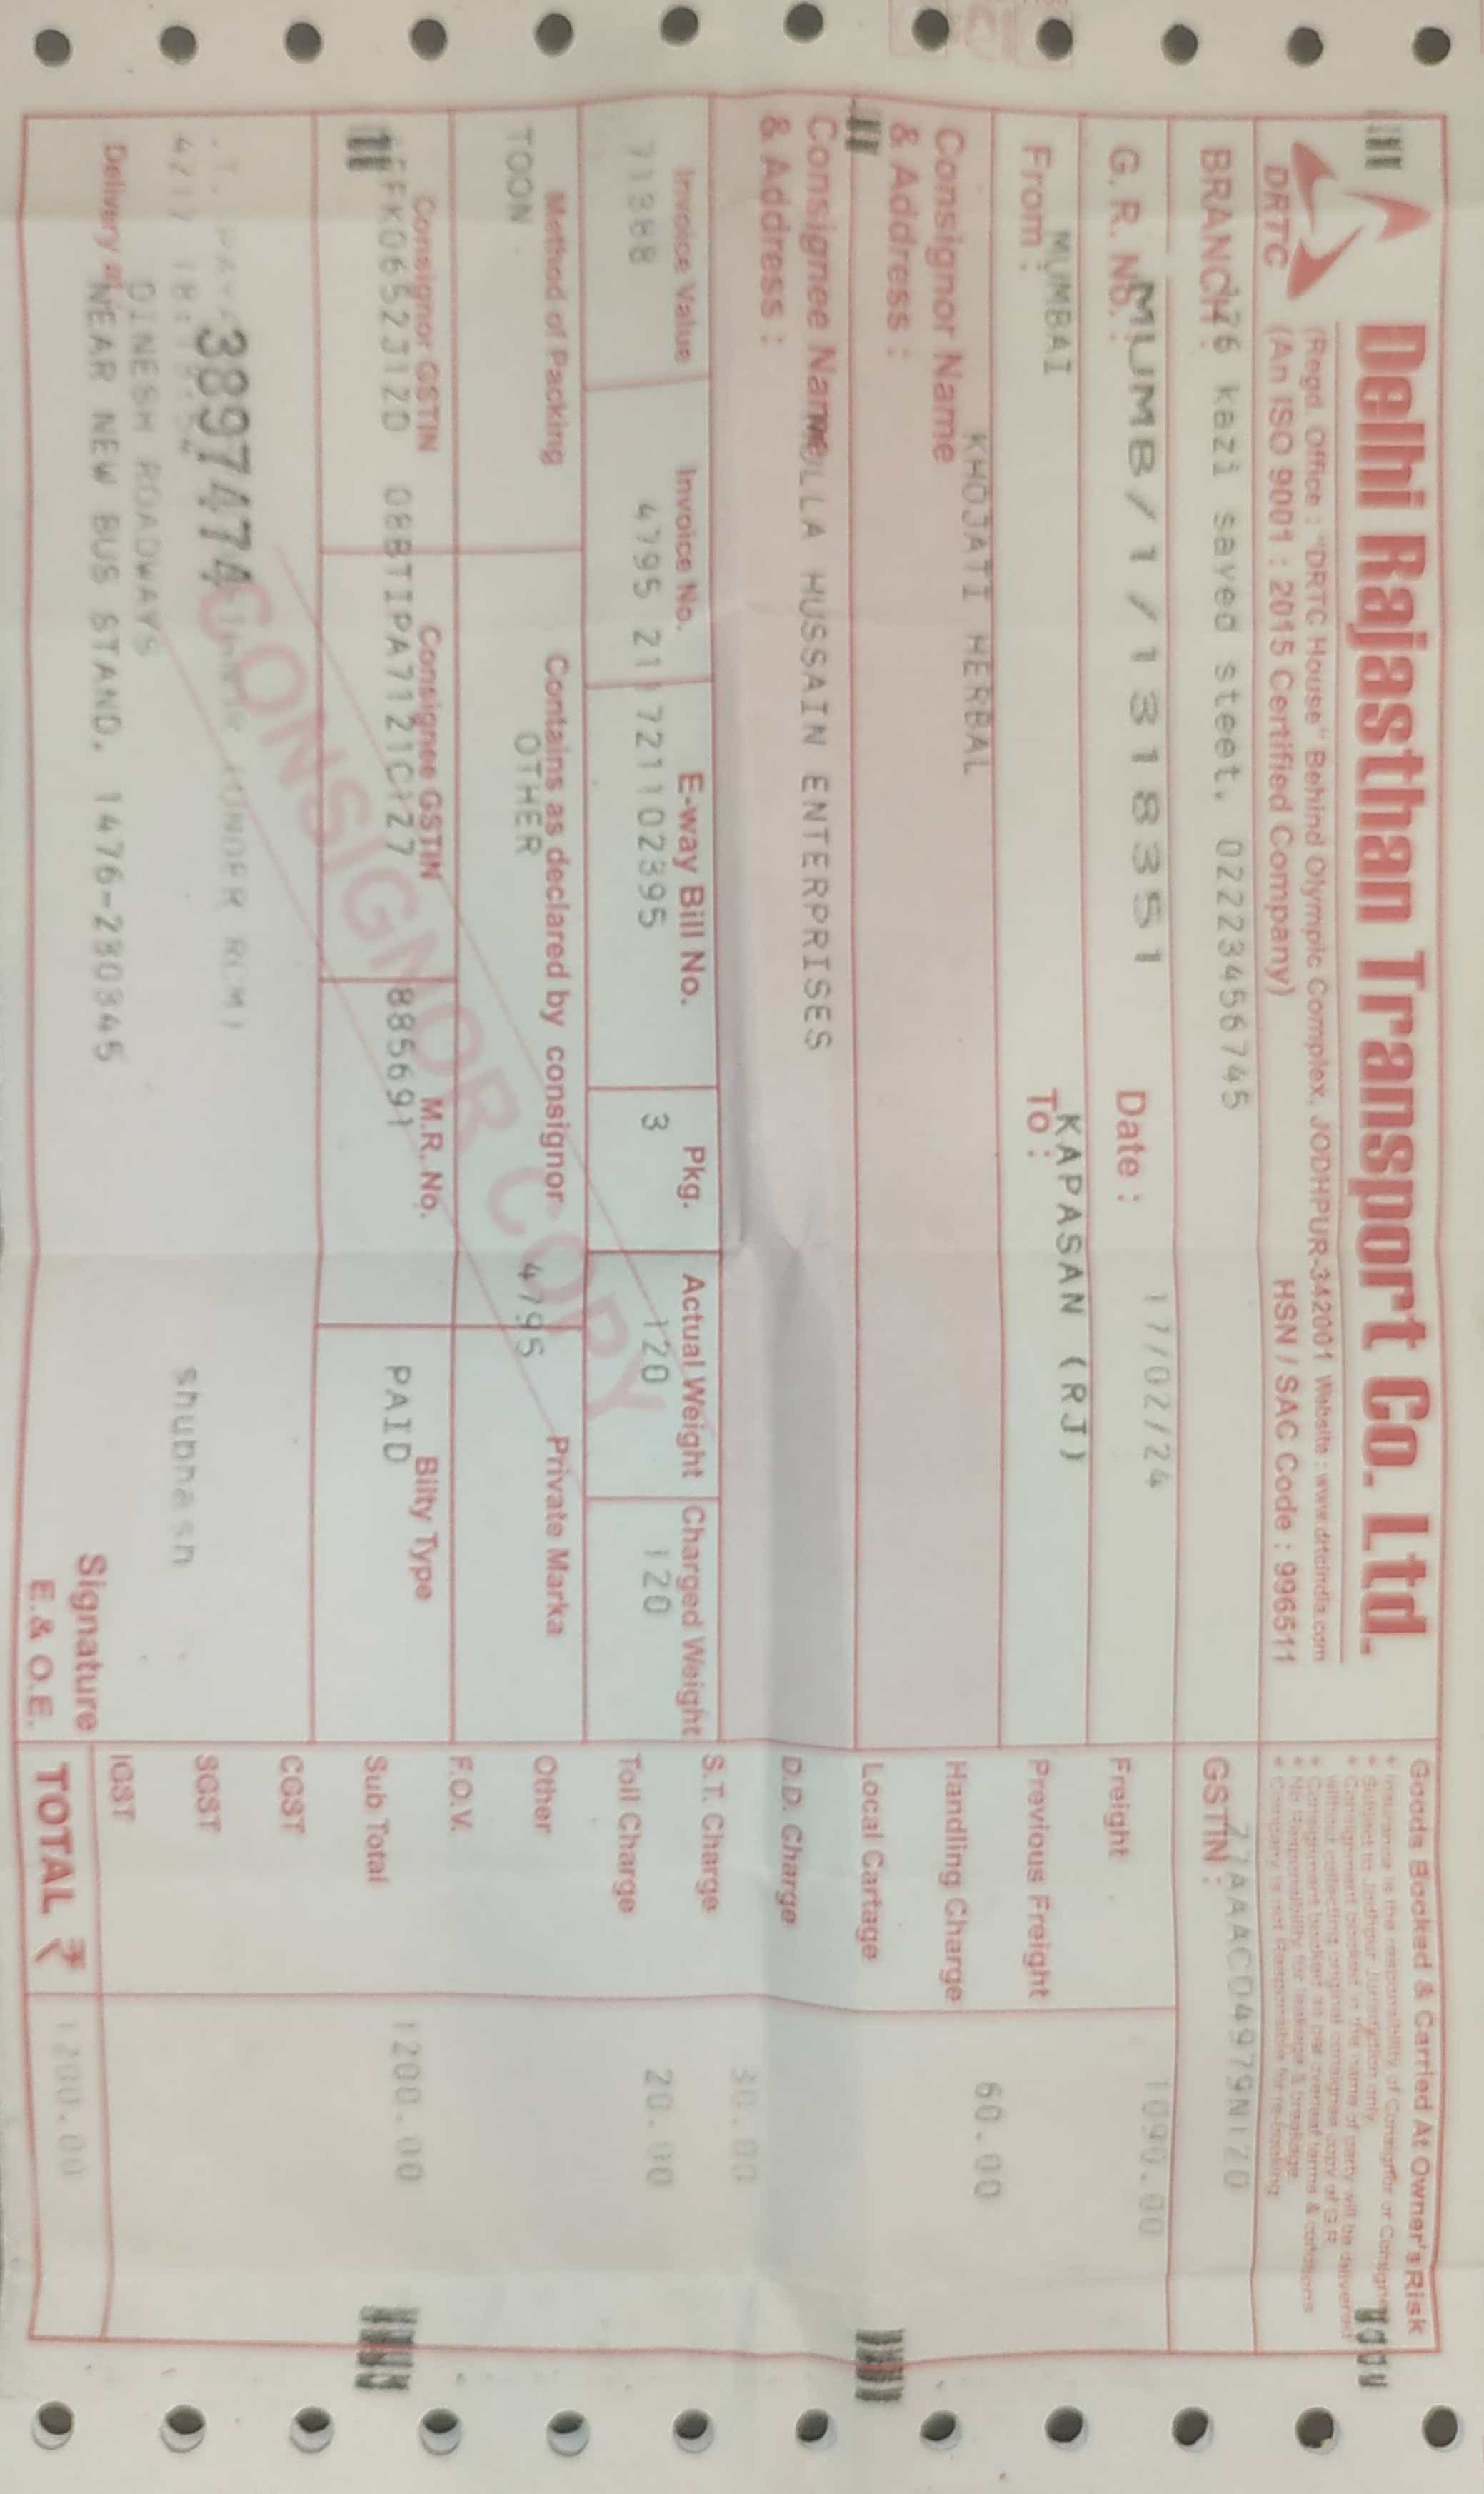 Delhi Rajasthan Transport Co. Ltd.
DRTC
(Regd. Office : "DRTC House" Behind Olympic Complex, JODHPUR-342001 Website : www.drtcindia.com
(An ISO 9001 : 2015 Certified Company)
HSN / SAC Code : 996511
Goods Booked & Carried At Owner's Risk
+ Insurance is the responsibility of Consignor or Consignee
+ Subject to Jodhpur Jurisdiction only
+ Consignment booked in the name of party will be delivered
without collecting original consignee copy of G.R.
+ Consignment booked as per overleaf terms & conditions
+ No Responsibility for leakage & breakage
+ Company is not Responsible for re-booking
BRANCH: 126 kazi sayed steet. 02223456745
GSTIN : 27AAACD4979N1Z0
G. R. No. : MUMB/1/1318351
Date : 17/02/24
From : MUMBAI
To : KAPASAN (RJ)
Consignor Name
& Address :
KHOJATI HERBAL
Consignee Name
& Address :
HUSSAIN ENTERPRISES
Invoice Value
Invoice No.
E-way Bill No.
Pkg.
Actual Weight
Charged Weight
71388
4795 21
3
120
120
Method of Packing
Contains as declared by consignor
Private Marka
TOON
OTHER
4795
Consignor GSTIN
Consignee GSTIN
M.R. No.
Bilty Type
885691
PAID
CONSIGNOR COPY
3897474
(UNDER RCM)
DINESH ROADWAYS
Delivery at
NEAR NEW BUS STAND, 1476-230345
shubhash
Signature
E.& O.E.
Freight 1090.00
Previous Freight
Handling Charge 60.00
Local Cartage
D.D. Charge
S.T. Charge 30.00
Toll Charge 20.00
Other
F.O.V.
Sub Total 1200.00
CGST
SGST
IGST
TOTAL ₹ 1200.00